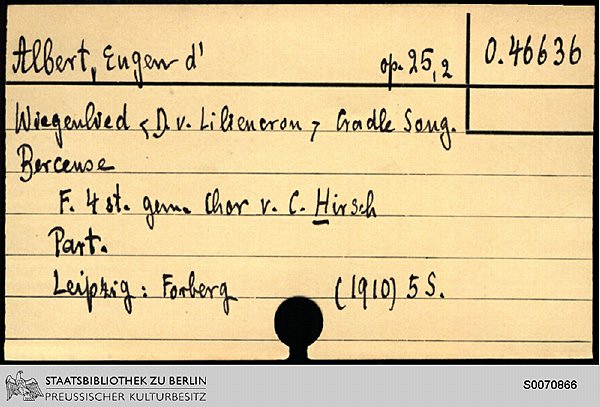 Albert, Eugen d' op. 25,2 O.46636
Wiegenlied <D. v. Liliencron> Cradle Song.
Berceuse
F. 4 st. gem. Chor v. C. Hirsch
Part.
Leipzig: Forberg (1910) 5 S.
STAATSBIBLIOTHEK ZU BERLIN
PREUSSISCHER KULTURBESITZ
S0070866